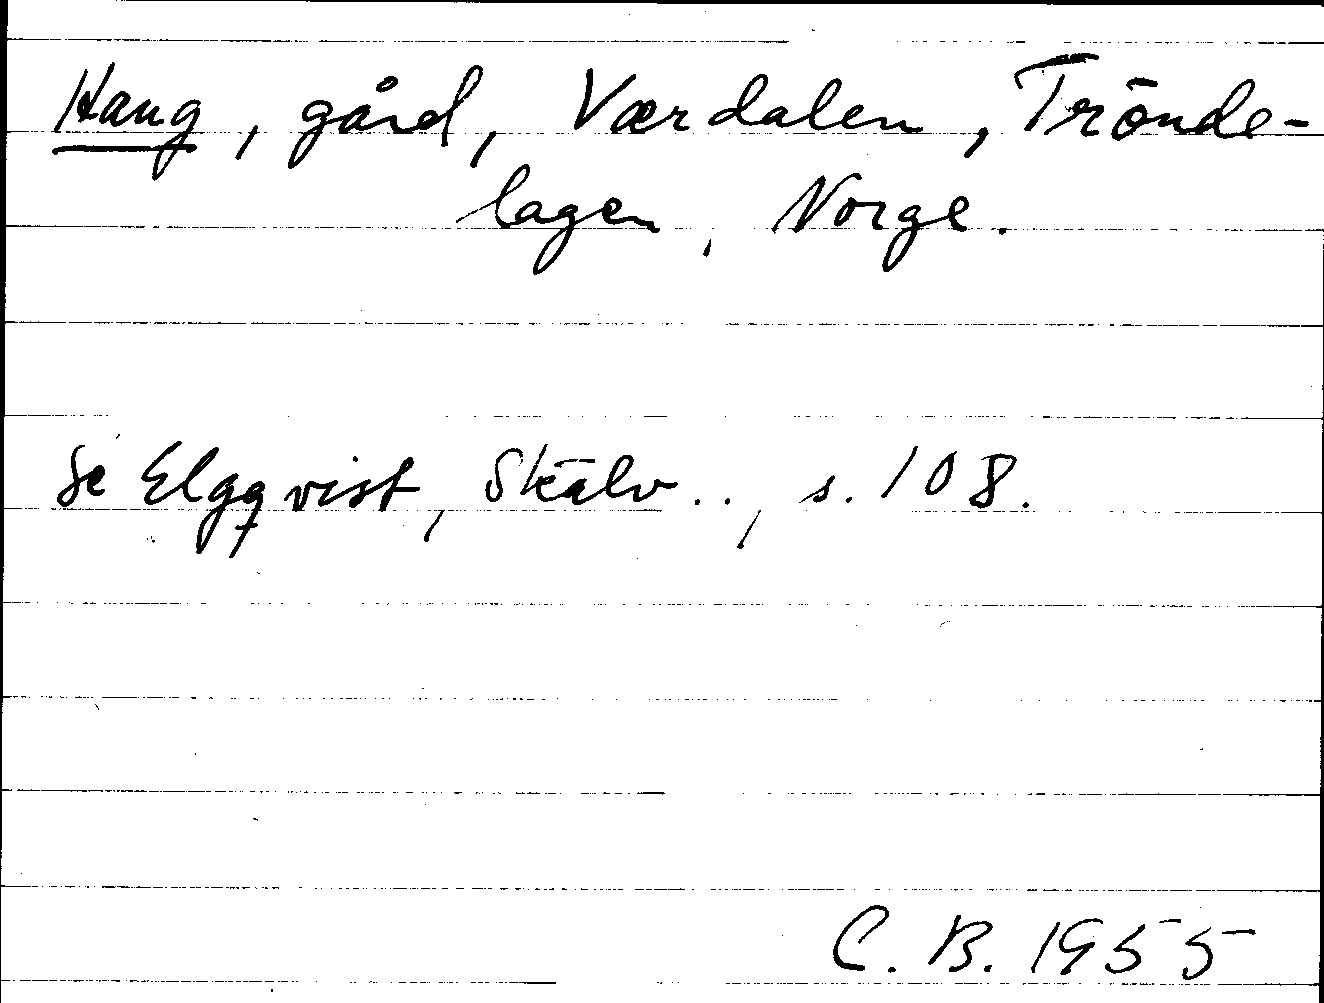 Haug, gård, Værdalen, Trönde-
lagen, Norge.
Se Elgqvist, Skälv.., s. 108.
C. B. 1955